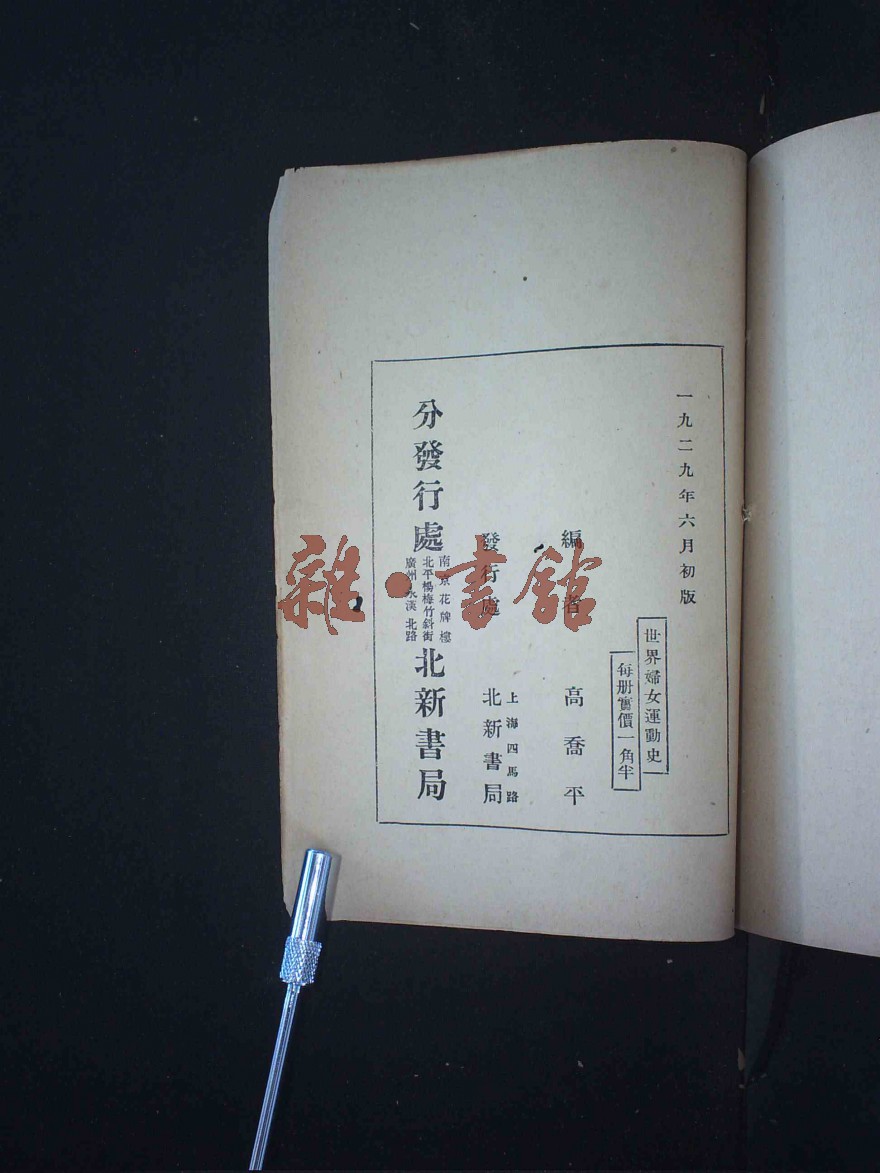 一九二九年六月初版
世界婦女運動史
每册實價一角半
編者 高喬平
發行處 上海四馬路 北新書局
分發行處
南京花牌樓
北平楊梅竹斜街
廣州永漢北路
北新書局
雜·書館